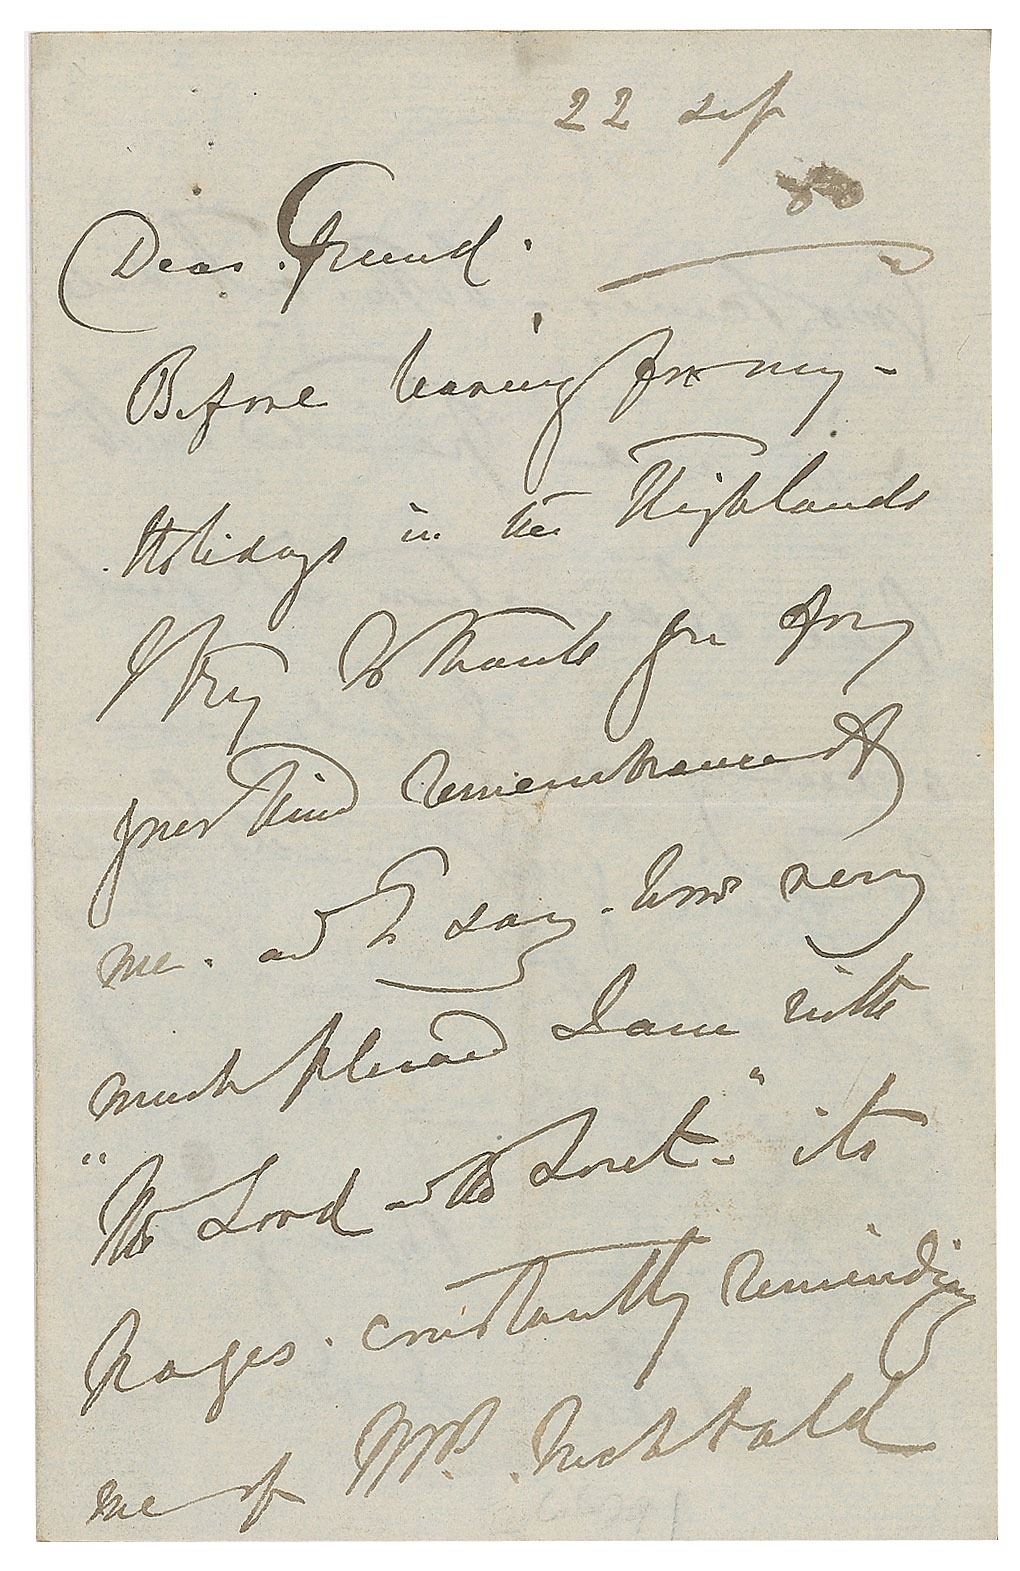 22 Sep
88
Dear friend.
Before leaving for my -
Holidays in the Highlands
I try to thank you for
your kind remembrance of
me. and to say - how very
much pleased I am with
"The Lord and the" its
pages. constantly reminding
me of Mrs. Inchbald